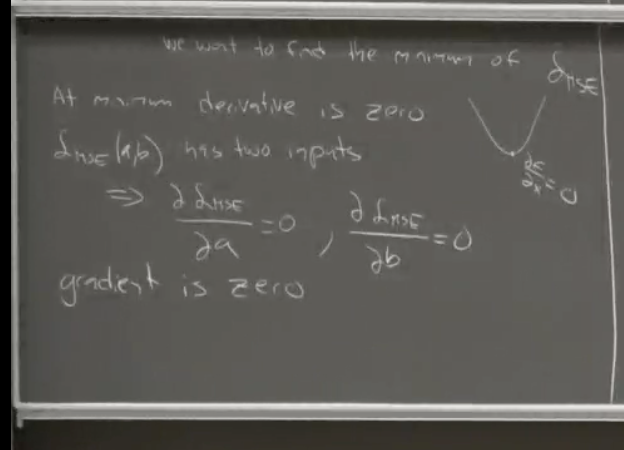 we want to find the minimum of ℒMSE
At minimum derivative is zero
ℒMSE(a,b) has two inputs
⇒ ∂ℒMSE/∂a = 0 , ∂ℒMSE/∂b = 0
gradient is zero
∂ℒ/∂x = 0